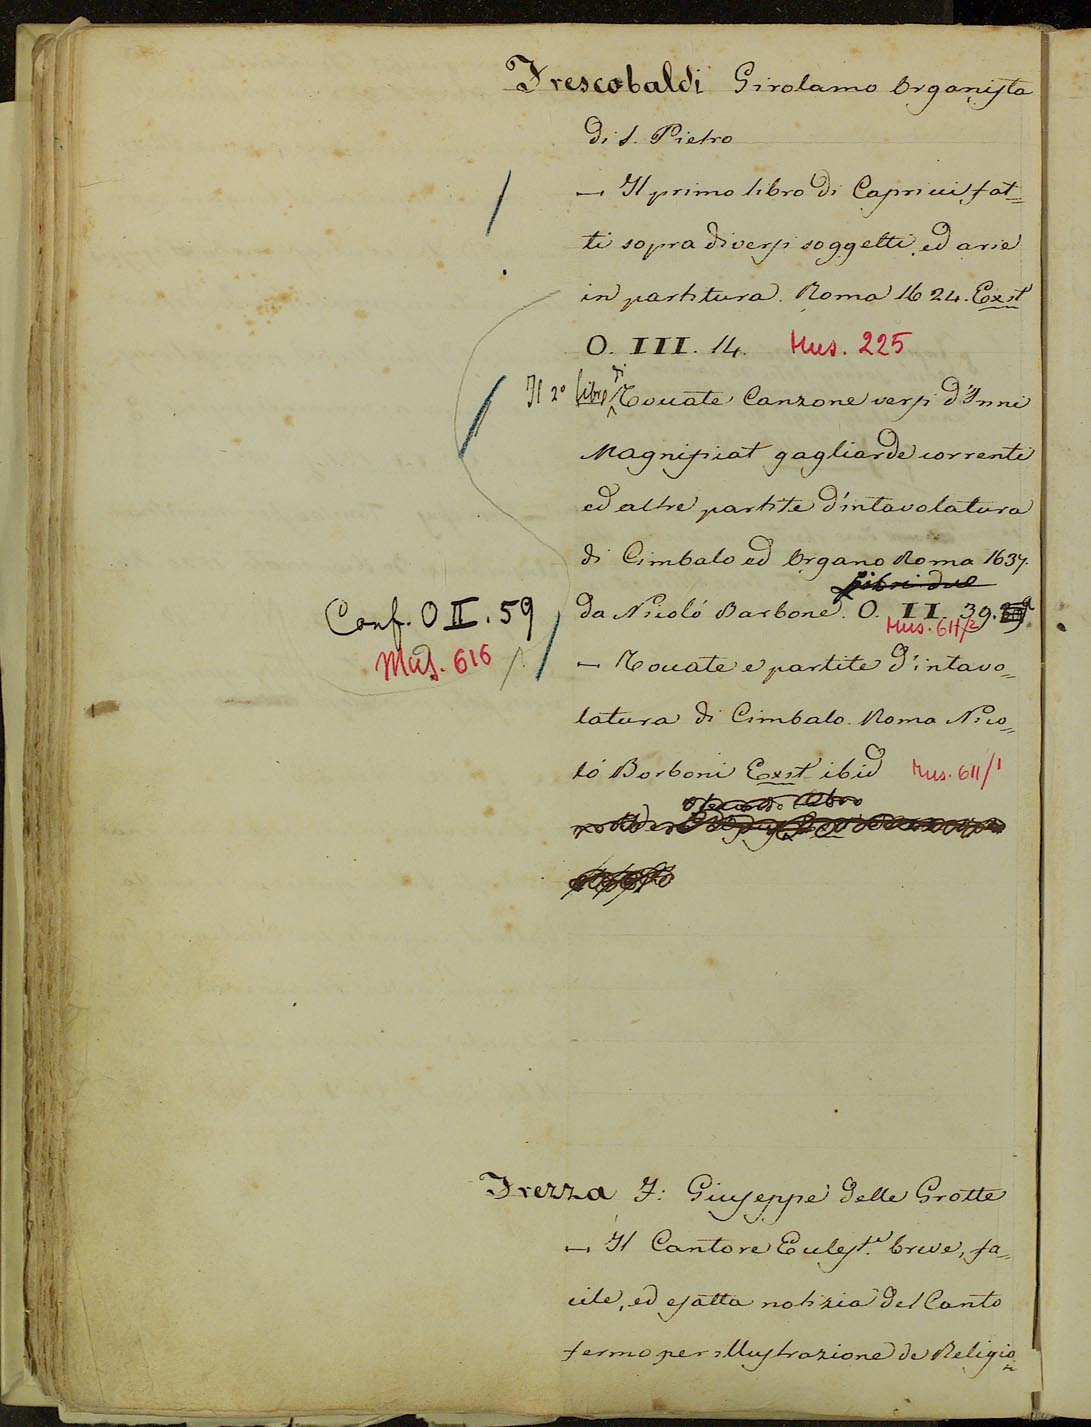 Frescobaldi Girolamo Organista
di S. Pietro
— Il primo libro di Capricci fat=
ti sopra diversi soggetti, ed arie
in partitura. Roma 1624. Exst
O. III. 14. Mus. 225
Il 2º libro di Toccate Canzone versi d'Inni
Magnificat gagliarde corrente
ed altre partite d'intavolatura
di Cimbalo ed Organo Roma 1637.
libri due
da Nicoló Barbone. O. II. 39.
Mus. 611/2
Conf. O II. 59
Mus. 616
— Toccate e partite d'intavo=
latura di Cimbalo. Roma Nico=
ló Borboni Exst ibid Mus. 611/1
Frezza F: Giuseppe delle Grotte
— Il Cantore Eccles.tº breve, fa=
cile, ed esatta notizia del Canto
fermo per illustrazione de Religio=